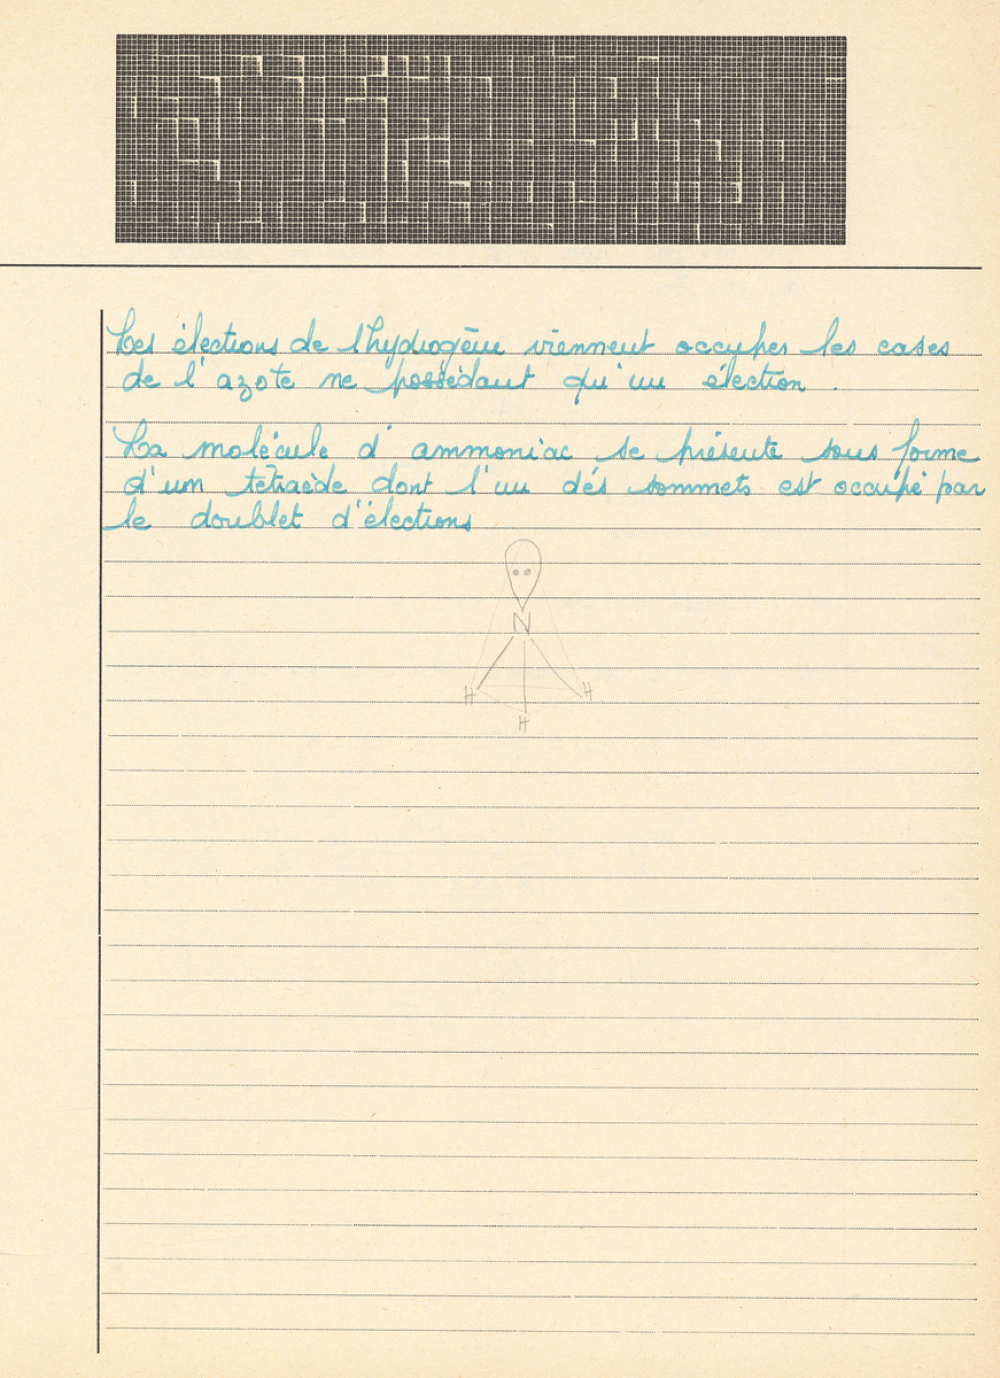 Les électrons de l'hydrogène viennent occuper les cases
de l'azote ne possèdant qu'un électron.
La molécule d'ammoniac se présente sous forme
d'un tétraède dont l'un dés sommets est occupé par
le doublet d'électrons
N
H H
H